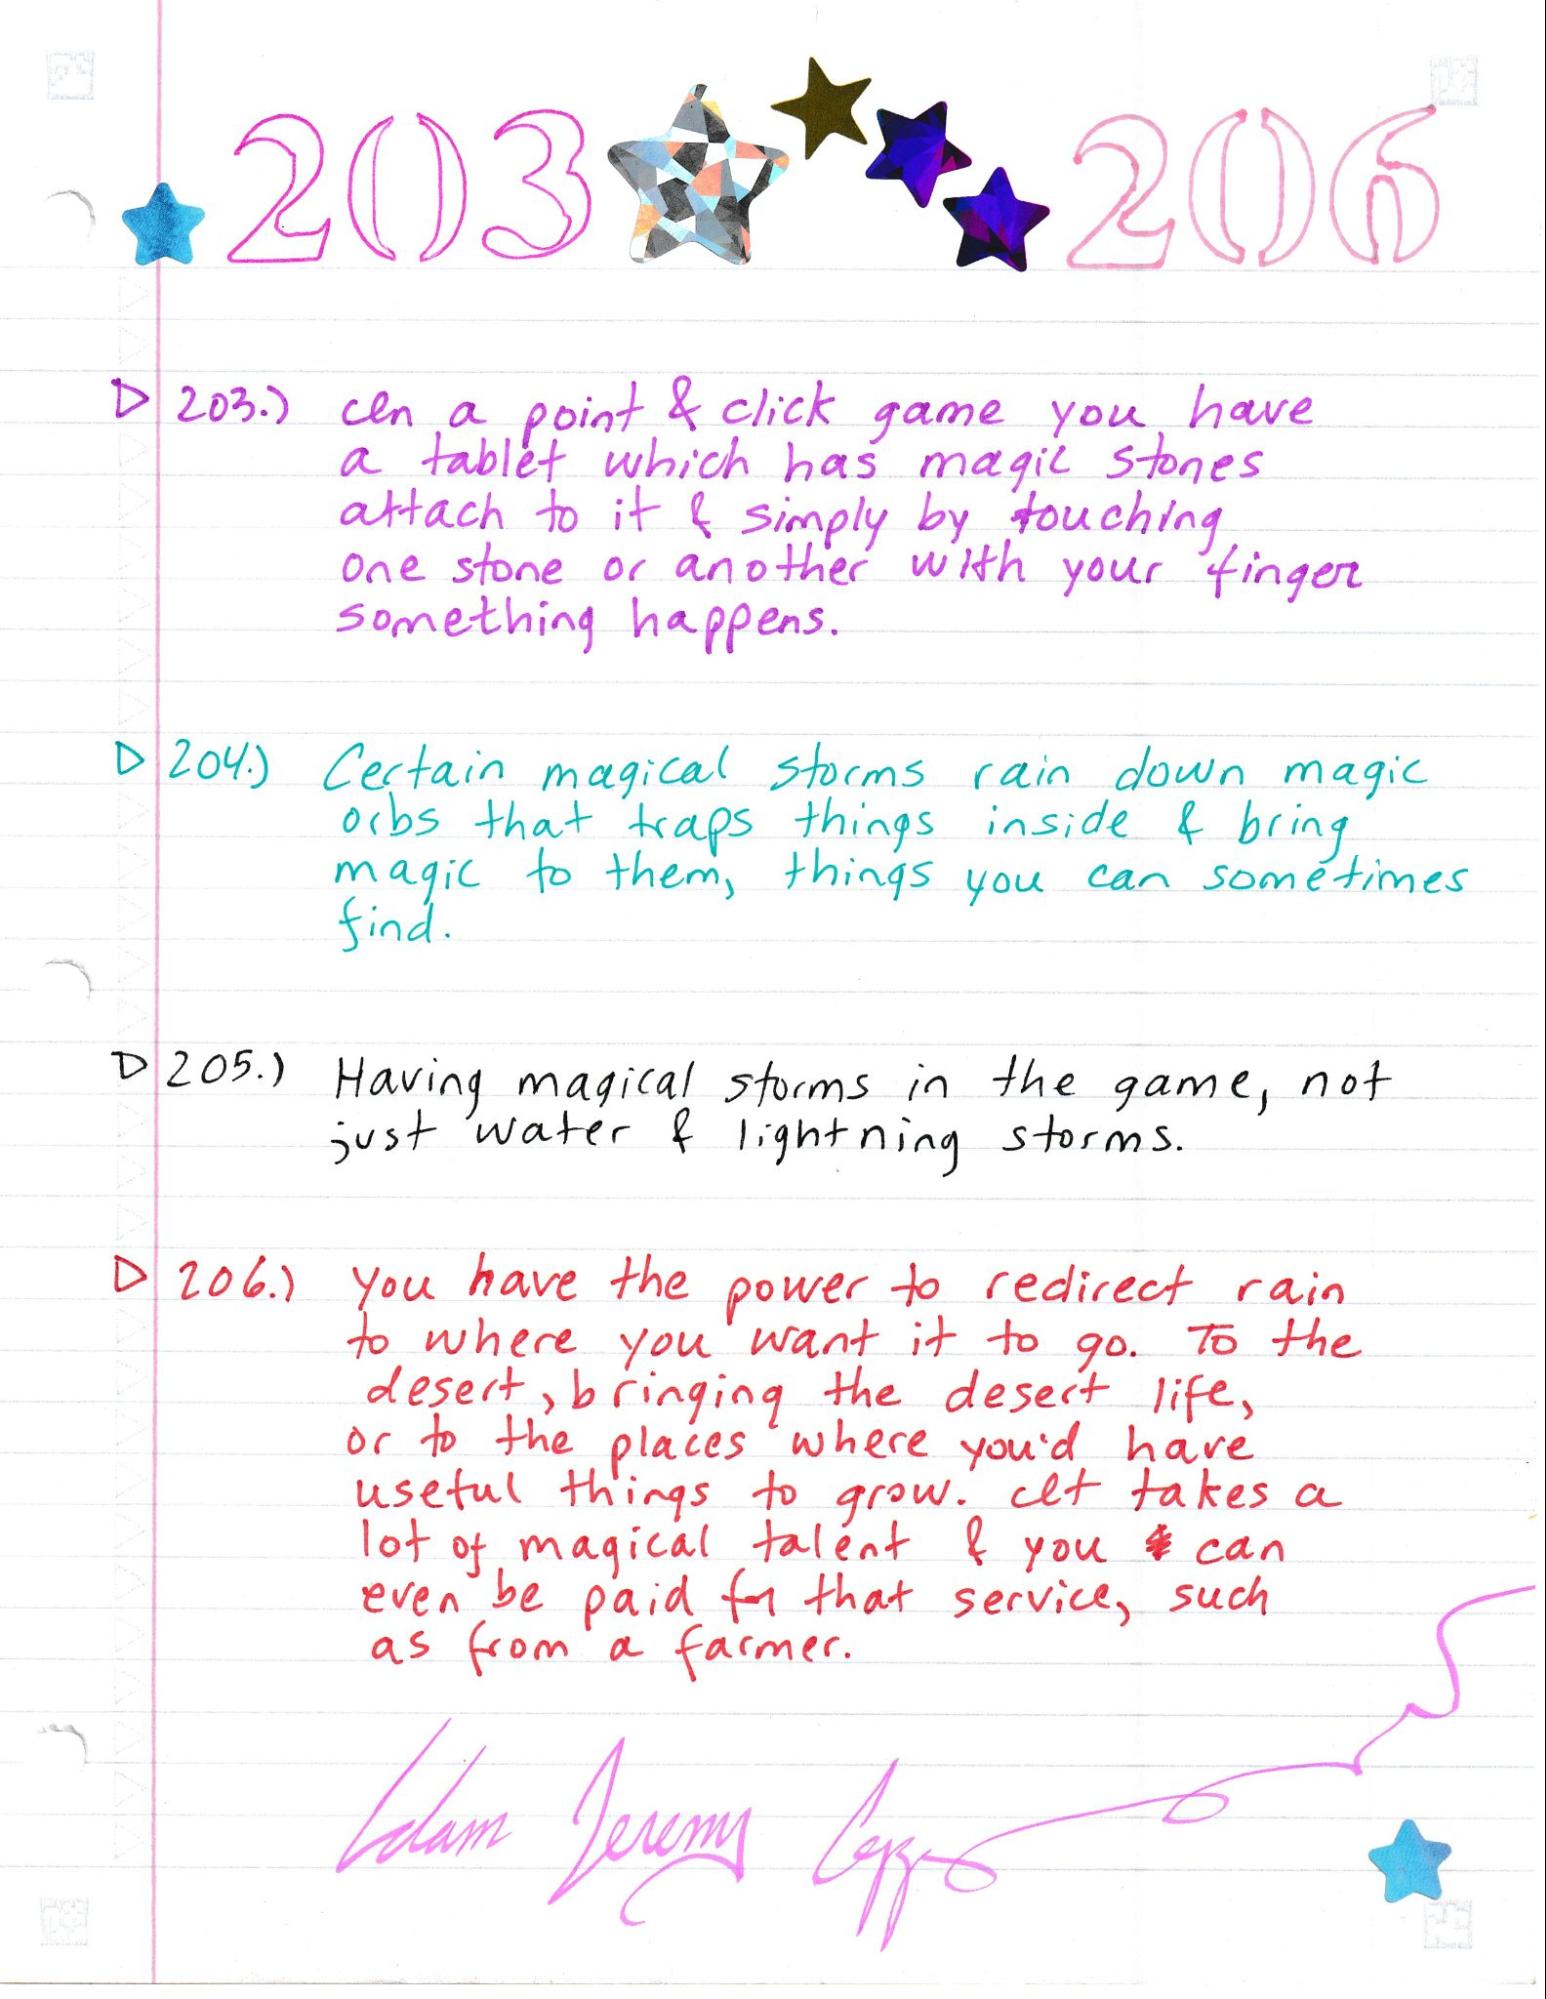 203 206
203.) In a point & click game you have
a tablet which has magic stones
attach to it & simply by touching
one stone or another with your finger
something happens.
204.) Certain magical storms rain down magic
orbs that traps things inside & bring
magic to them, things you can sometimes
find.
205.) Having magical storms in the game, not
just water & lightning storms.
206.) You have the power to redirect rain
to where you want it to go. To the
desert, bringing the desert life,
or to the places where you'd have
useful things to grow. It takes a
lot of magical talent & you can
even be paid for that service, such
as from a farmer.
Adam Jeremy